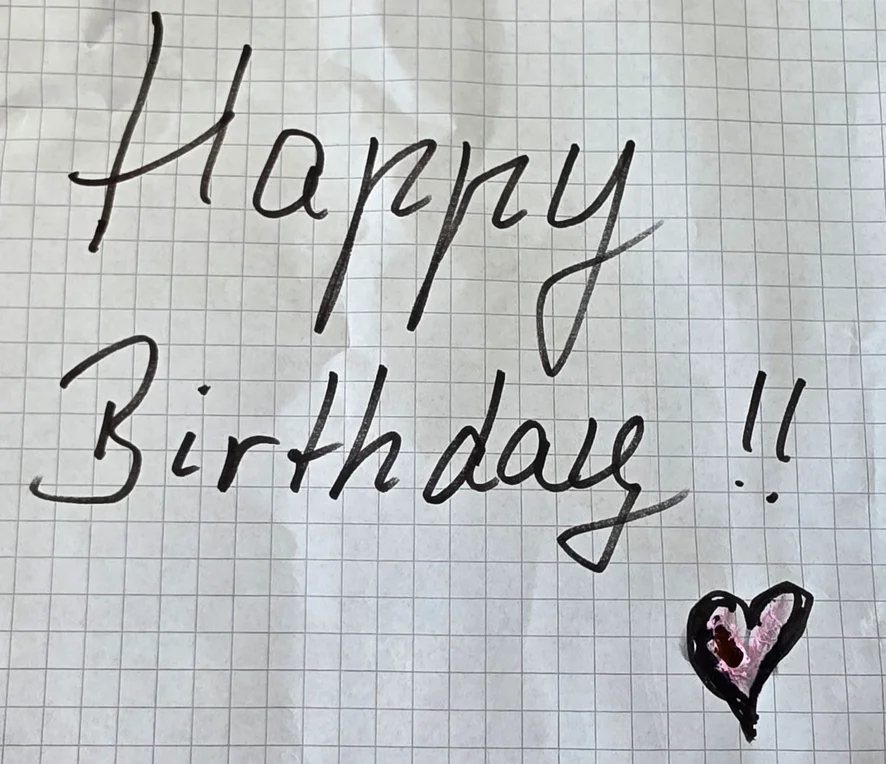 Happy
Birthday !!